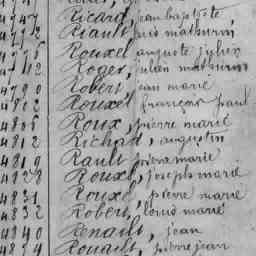 4747 Ricard, jean baptiste,
4772 Riault, mathurin
Rouxel auguste julien
4742 Roger, julien mathurin
4790 Robert, jean marie
4802 Rouxel françois paul
4805 Roux, pierre marie
4812 Richard, augustin
4819 Rault pierre marie
4828 Rouxel, joseph marie
4831 Rouxel, pierre marie
4832 Robert, louis marie
4840 Renault, jean
4874 Rouault, pierre jean